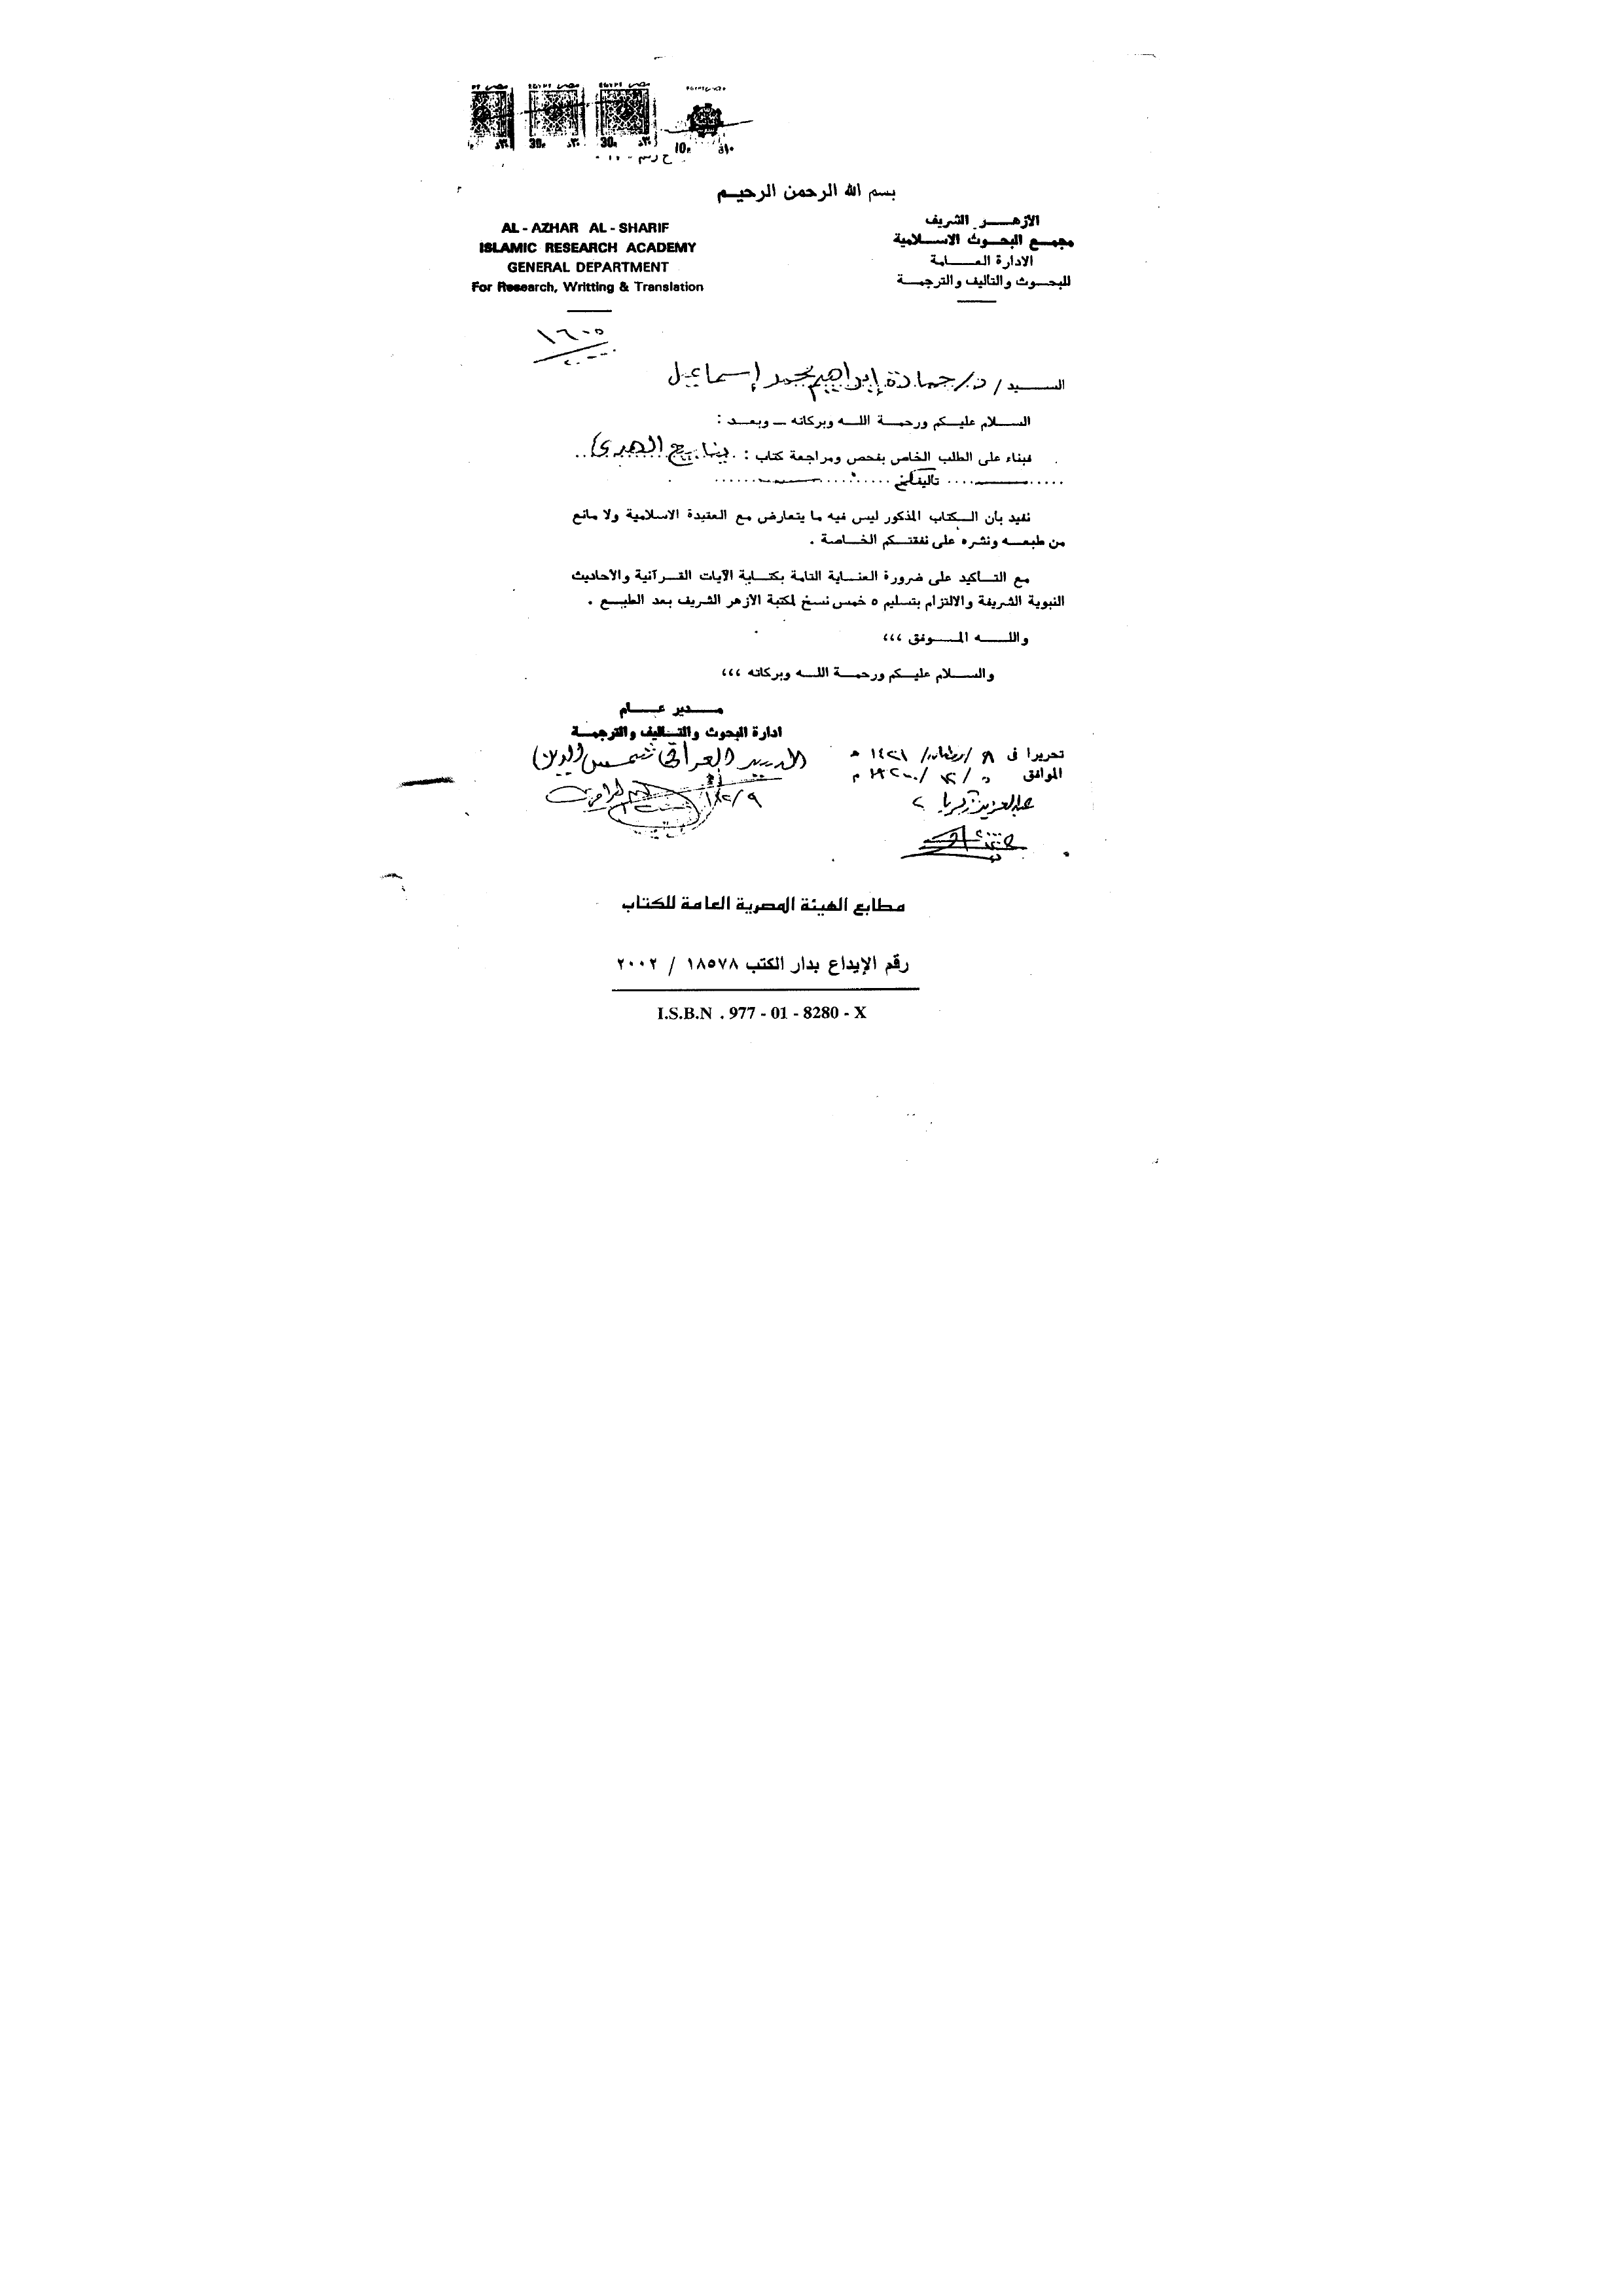 30 30 10
بسم الله الرحمن الرحيم
الأزهر الشريف
مجمع البحوث الاسلامية
الادارة العامة
للبحوث والتأليف والترجمة
AL - AZHAR AL - SHARIF
ISLAMIC RESEARCH ACADEMY
GENERAL DEPARTMENT
For Research, Writting & Translation
السيد / د/ حمادة إبراهيم محمد إسماعيل
السلام عليكم ورحمة الله وبركاته ــ وبعد :
فبناء على الطلب الخاص بفحص ومراجعة كتاب : ينابيع الهدى
تأليف
نفيد بأن الكتاب المذكور ليس فيه ما يتعارض مع العقيدة الاسلامية ولا مانع
من طبعه ونشره على نفقتكم الخاصة .
مع التأكيد على ضرورة العناية التامة بكتابة الآيات القرآنية والأحاديث
النبوية الشريفة والالتزام بتسليم ٥ خمس نسخ لمكتبة الأزهر الشريف بعد الطبع .
والله الموفق ،،،
والسلام عليكم ورحمة الله وبركاته ،،،
مدير عام
ادارة البحوث والتأليف والترجمة
تحريرا فى / رمضان / ١٤٢١ هـ
الموافق م
مطابع الهيئة المصرية العامة للكتاب
رقم الإيداع بدار الكتب ١٨٥٧٨ / ٢٠٠٢
I.S.B.N . 977 - 01 - 8280 - X